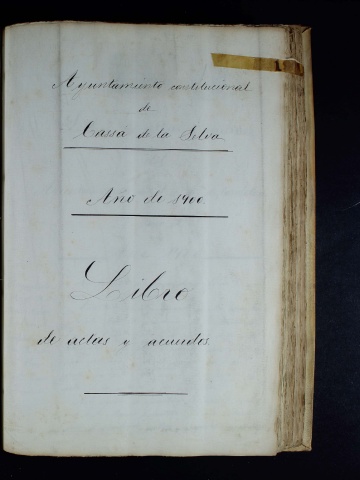 1
Ayuntamiento constitucional
de
Cassá de la Selva
Año de 1900
Libro
de actas y acuerdos